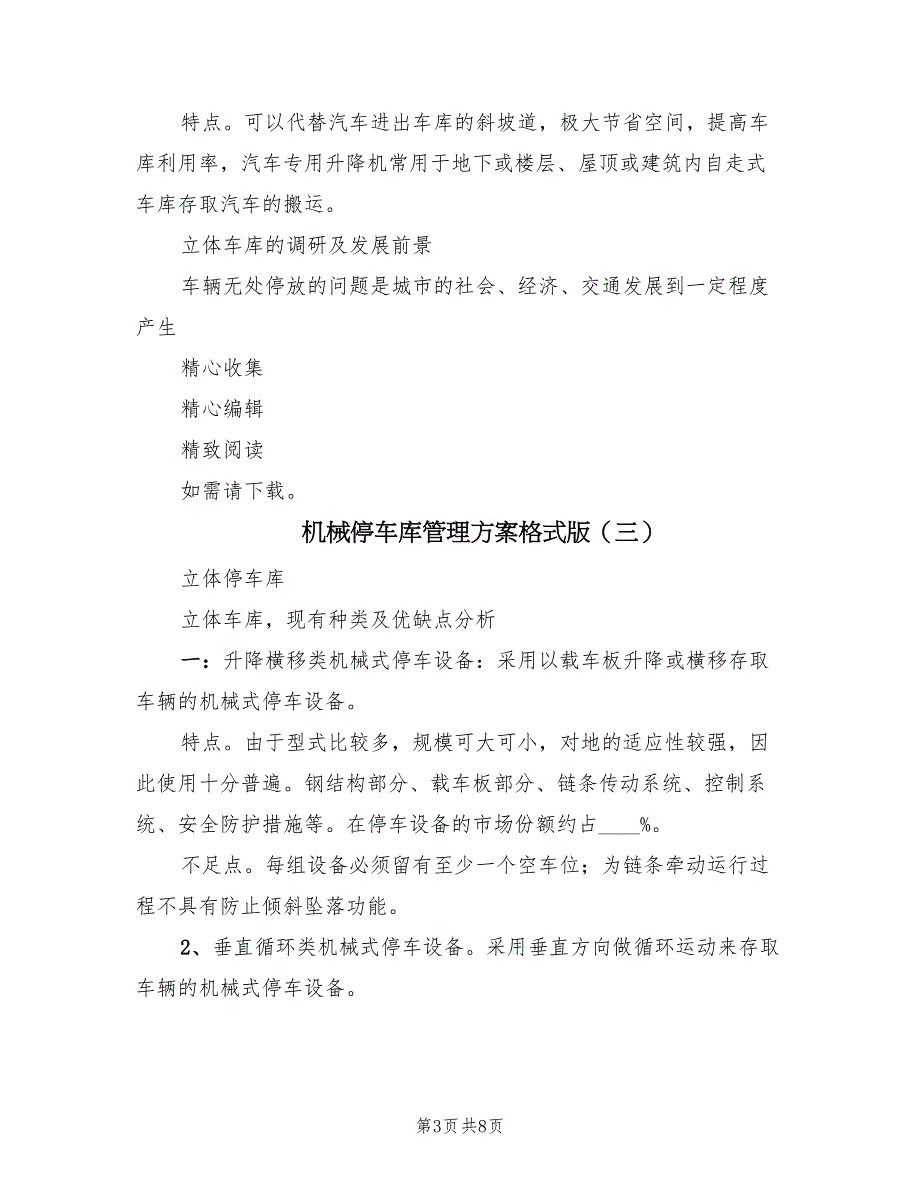 特点。可以代替汽车进出车库的斜坡道，极大节省空间，提高车
库利用率，汽车专用升降机常用于地下或楼层、屋顶或建筑内自走式
车库存取汽车的搬运。
立体车库的调研及发展前景
车辆无处停放的问题是城市的社会、经济、交通发展到一定程度
产生
精心收集
精心编辑
精致阅读
如需请下载。
机械停车库管理方案格式版（三）
立体停车库
立体车库，现有种类及优缺点分析
一：升降横移类机械式停车设备：采用以载车板升降或横移存取
车辆的机械式停车设备。
特点。由于型式比较多，规模可大可小，对地的适应性较强，因
此使用十分普遍。钢结构部分、载车板部分、链条传动系统、控制系
统、安全防护措施等。在停车设备的市场份额约占____%。
不足点。每组设备必须留有至少一个空车位；为链条牵动运行过
程不具有防止倾斜坠落功能。
2、垂直循环类机械式停车设备。采用垂直方向做循环运动来存取
车辆的机械式停车设备。
第3页共8页